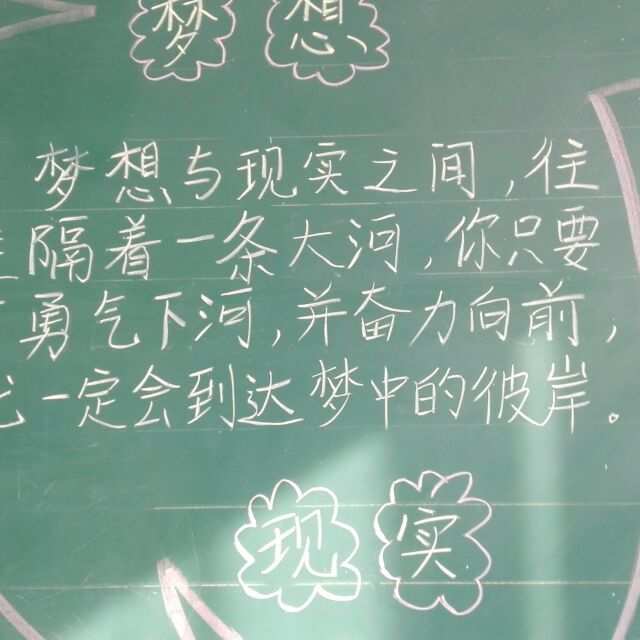 梦想
梦想与现实之间,往
隔着一条大河,你只要
勇气下河,并奋力向前,
一定会到达梦中的彼岸。
现实